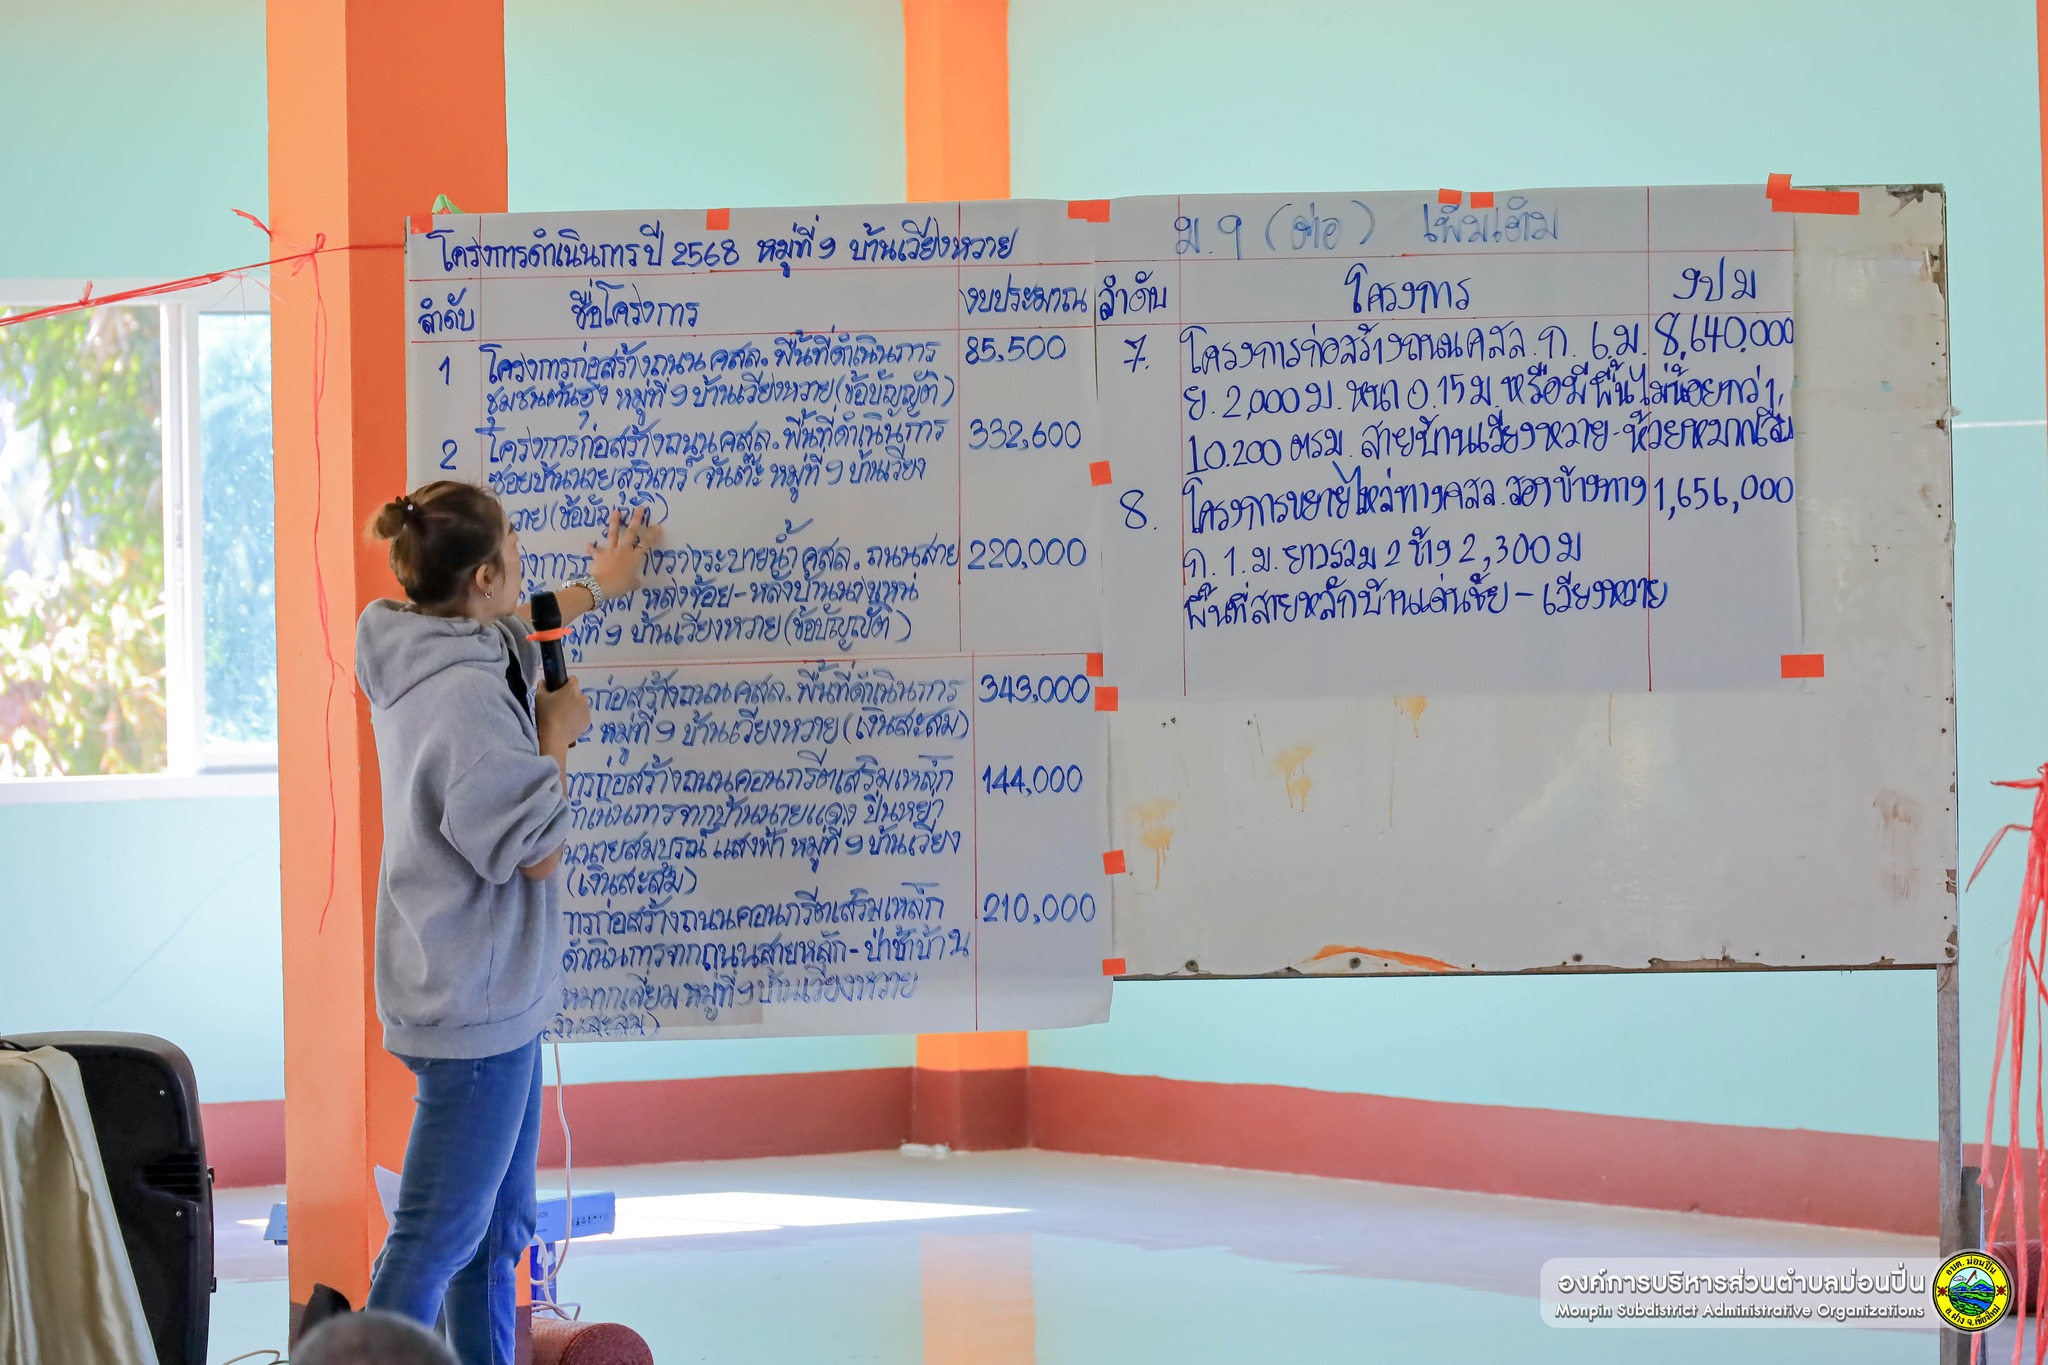 โครงการดำเนินการ ปี 2568 หมู่ที่ 9 บ้านเวียงหวาย
ลำดับ ชื่อโครงการ งบประมาณ
1 โครงการก่อสร้างถนน คสล. พื้นที่ดำเนินการ 85,500
ชุมชนต้นฮุง หมู่ที่ 9 บ้านเวียงหวาย (ข้อบัญญัติ)
2 โครงการก่อสร้างถนน คสล. พื้นที่ดำเนินการ 332,600
ซอยบ้านนายสุรินทร์ จันต๊ะ หมู่ที่ 9 บ้านเวียง
วาย (ข้อบัญญัติ)
งรางระบายน้ำ คสล. ถนนสาย 220,000
หลังบ้านนาง
หมู่ที่ 9 บ้านเวียงหวาย (ข้อบัญญัติ)
ก่อสร้างถนน คสล. พื้นที่ดำเนินการ 343,000
หมู่ที่ 9 บ้านเวียงหวาย (เงินสะสม)
ก่อสร้างถนนคอนกรีตเสริมเหล็ก 144,000
ดำเนินการจากบ้านนายแดง ปื่นหย่า
นายสมบูรณ์ แสงฟ้า หมู่ที่ 9 บ้านเวียง
(เงินสะสม)
การก่อสร้างถนนคอนกรีตเสริมเหล็ก 210,000
ดำเนินการจากถนนสายหลัก - ป่าช้าบ้าน
หมากเลี่ยม หมู่ที่ 9 บ้านเวียงหวาย
เงินสะสม)
ม. 9 (ต่อ) เพิ่มเติม
ลำดับ โครงการ งปม
7. โครงการก่อสร้างถนน คสล. ก. 6 ม. 8,640,000
ย. 2,000 ม. หนา 0.15 ม. หรือมีพื้นไม่น้อยกว่า
10.200 ตรม. สายบ้านเวียงหวาย - ห้วยหมากเลี่ยม
8. โครงการขยายไหล่ทาง คสล. สองข้างทาง 1,656,000
ก. 1. ม. ยาวรวม 2 ข้าง 2,300 ม
พื้นที่สายหลักบ้านเด่นชัย - เวียงหวาย
องค์การบริหารส่วนตำบลม่อนปิ่น
Monpin Subdistrict Administrative Organizations
อบต. ม่อนปิ่น
อ.ฝาง จ.เชียงใหม่